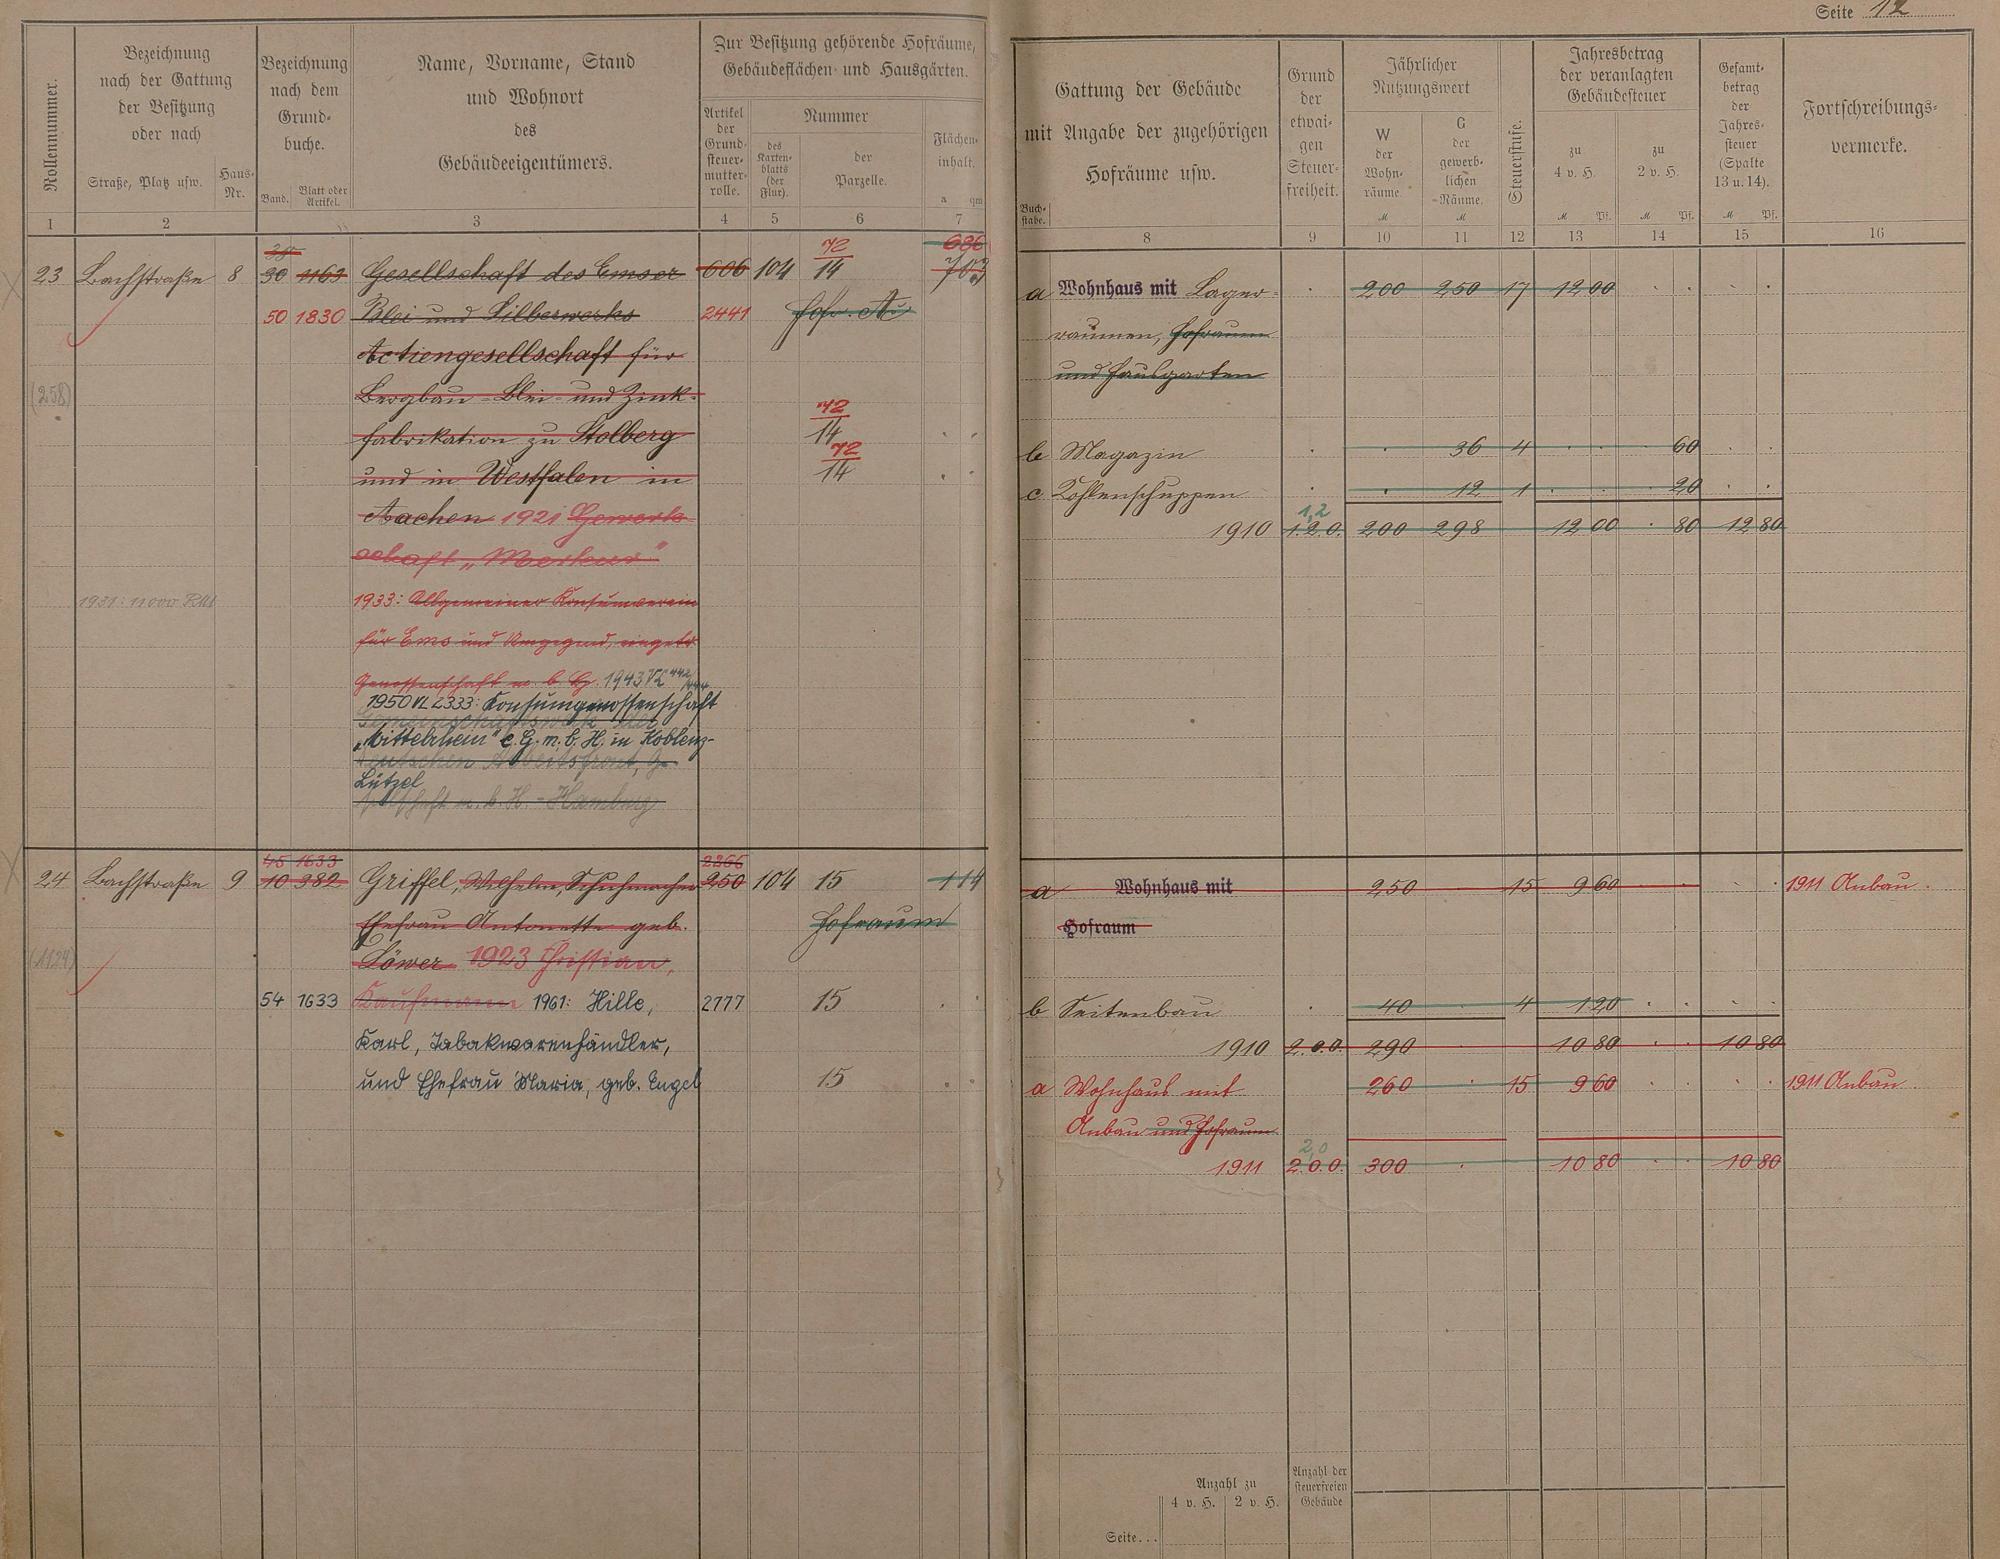 Seite 12
Rollennummer.
Bezeichnung
nach der Gattung
der Besitzung
oder nach
Straße, Platz usw.
Haus-
Nr.
Bezeichnung
nach dem
Grund-
buche.
Band.
Blatt oder
Artikel.
Name, Vorname, Stand
und Wohnort
des
Gebäudeeigentümers.
Zur Besitzung gehörende Hofräume,
Gebäudeflächen und Hausgärten.
Artikel
der
Grund-
steuer-
mutter-
rolle.
Nummer
des
Karten-
blatts
(der
Flur).
der
Parzelle.
Flächen-
inhalt.
a qm
1 2 3 4 5 6 7
23 Bachstraße 8 30 1163 Gesellschaft des Emser 606 104 72/14
686
50 1830 Blei und Silberwerks 2441
Actiengesellschaft für
(258) Bergbau-Blei- und Zink-
fabrikation zu Stolberg 72/14
und in Westfalen in 72/14
Aachen 1921 Gewerk-
schaft „Merkur"
1931: 11000 RM 1933: Allgemeiner Konsumverein
für Ems und Umgegend, eingetr.
Genossenschaft m. b. H. 1943 VL 442
1950 VL 2333: Konsumgenossenschaft
Gemeinschaftswerk der
„Mittelrhein" e.G.m.b.H. in Koblenz-
Deutschen Arbeitsfront, Ge-
Lützel
sellschaft m. b. H. - Hamburg
45 1633 2266
24 Bachstraße 9 10 382 Griffel, Wilhelm, Schuhmacher 250 104 15 1 14
Ehefrau Antonette geb. Hofraum
Löwer 1923 Christian,
54 1633 Kaufmann 1961: Hille, 2777 15
Karl, Tabakwarenhändler,
und Ehefrau Maria, geb. Engel 15
Gattung der Gebäude
mit Angabe der zugehörigen
Hofräume usw.
Buch-
stabe.
Grund
der
etwai-
gen
Steuer-
freiheit.
Jährlicher
Nutzungswert
W
der
Wohn-
räume.
M
G
der
gewerb-
lichen
Räume.
M
Steuerstufe.
Jahresbetrag
der veranlagten
Gebäudesteuer
zu
4 v. H.
M Pf.
zu
2 v. H.
M Pf.
Gesamt-
betrag
der
Jahres-
steuer
(Spalte
13 u. 14).
M Pf.
Fortschreibungs-
vermerke.
8 9 10 11 12 13 14 15 16
a Wohnhaus mit Lager- 200 250 17 12 00
räumen, Hofraum
und Hausgarten
b Magazin 36 4 60
c Kohlenschuppen 12 1 20
1,2
1910 1.2.0. 200 298 12 00 80 12 80
a Wohnhaus mit 250 15 9 60 1911 Anbau.
Hofraum
b Seitenbau 40 4 1 20
1910 2.0.0. 290 10 80 10 80
a Wohnhaus mit 260 15 9 60 1911 Anbau.
Anbau und Hofraum
2,0
1911 2.0.0. 300 10 80 10 80
Anzahl zu
4 v. H. 2 v. H.
Anzahl der
steuerfreien
Gebäude
Seite...